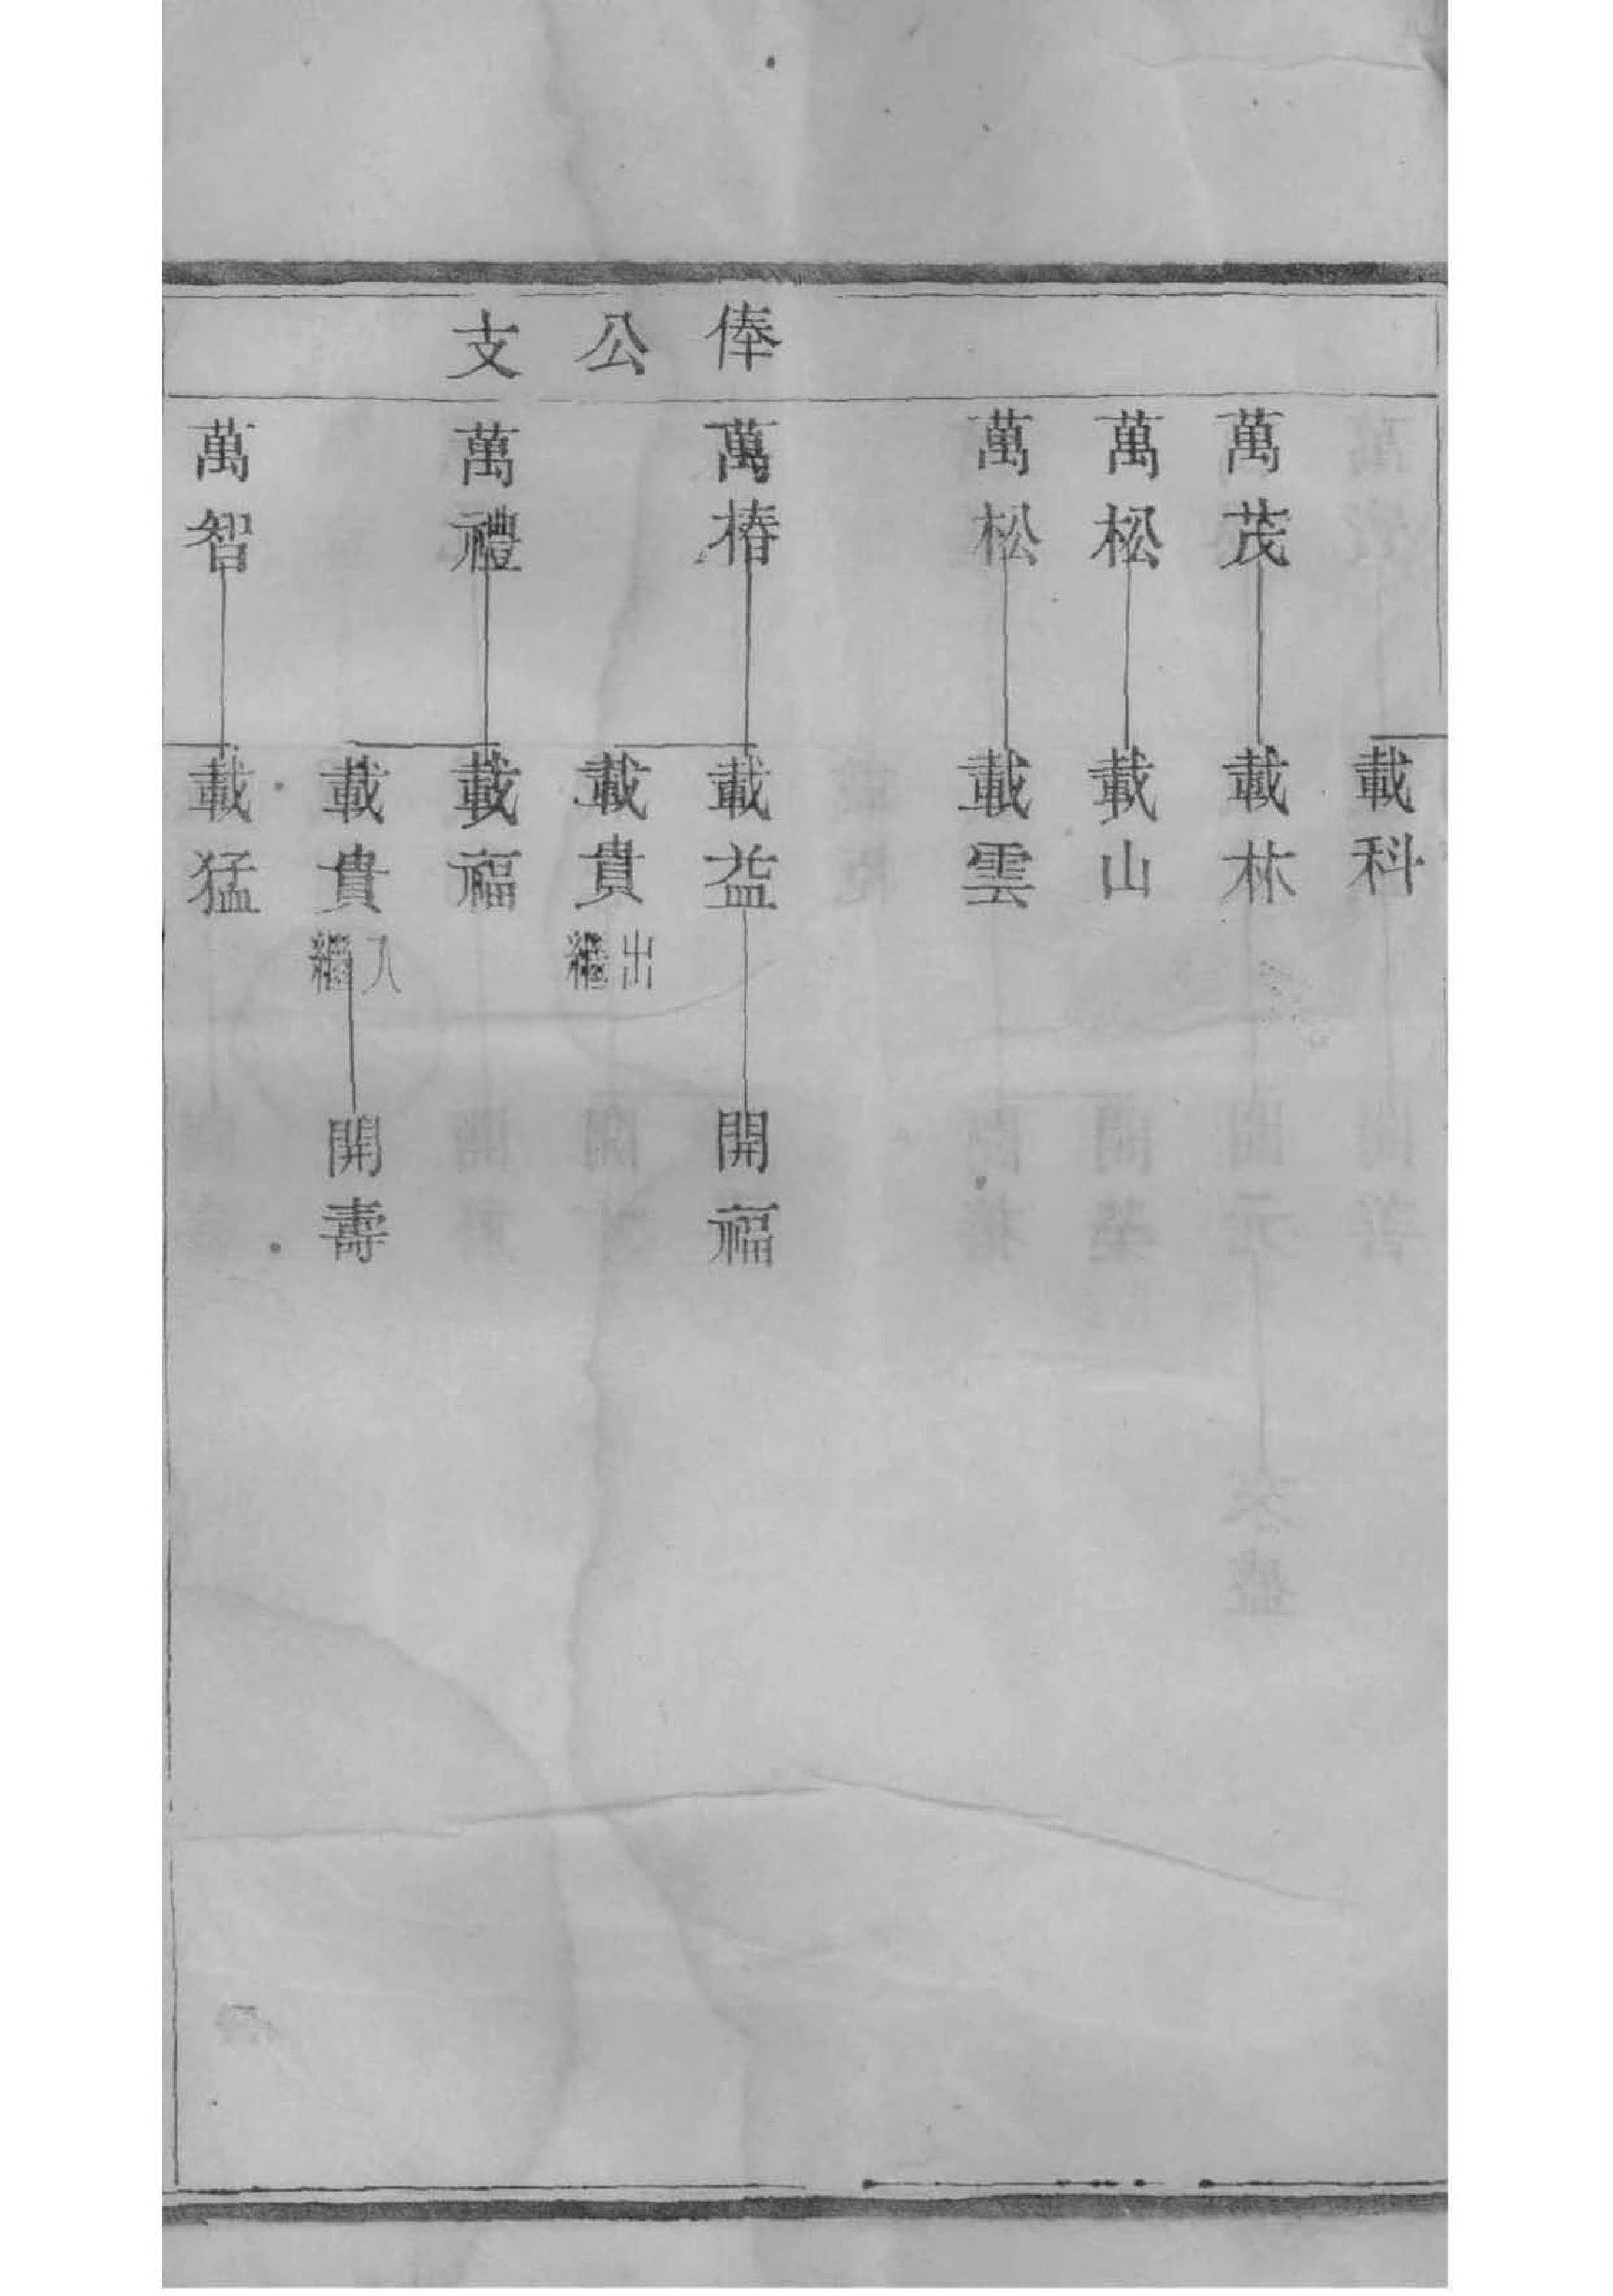 俸公支
載科
萬茂載林
萬松載山
萬松載雲
萬椿載益開福
載貴出繼
萬禮載福
載貴入繼開壽
萬智載猛